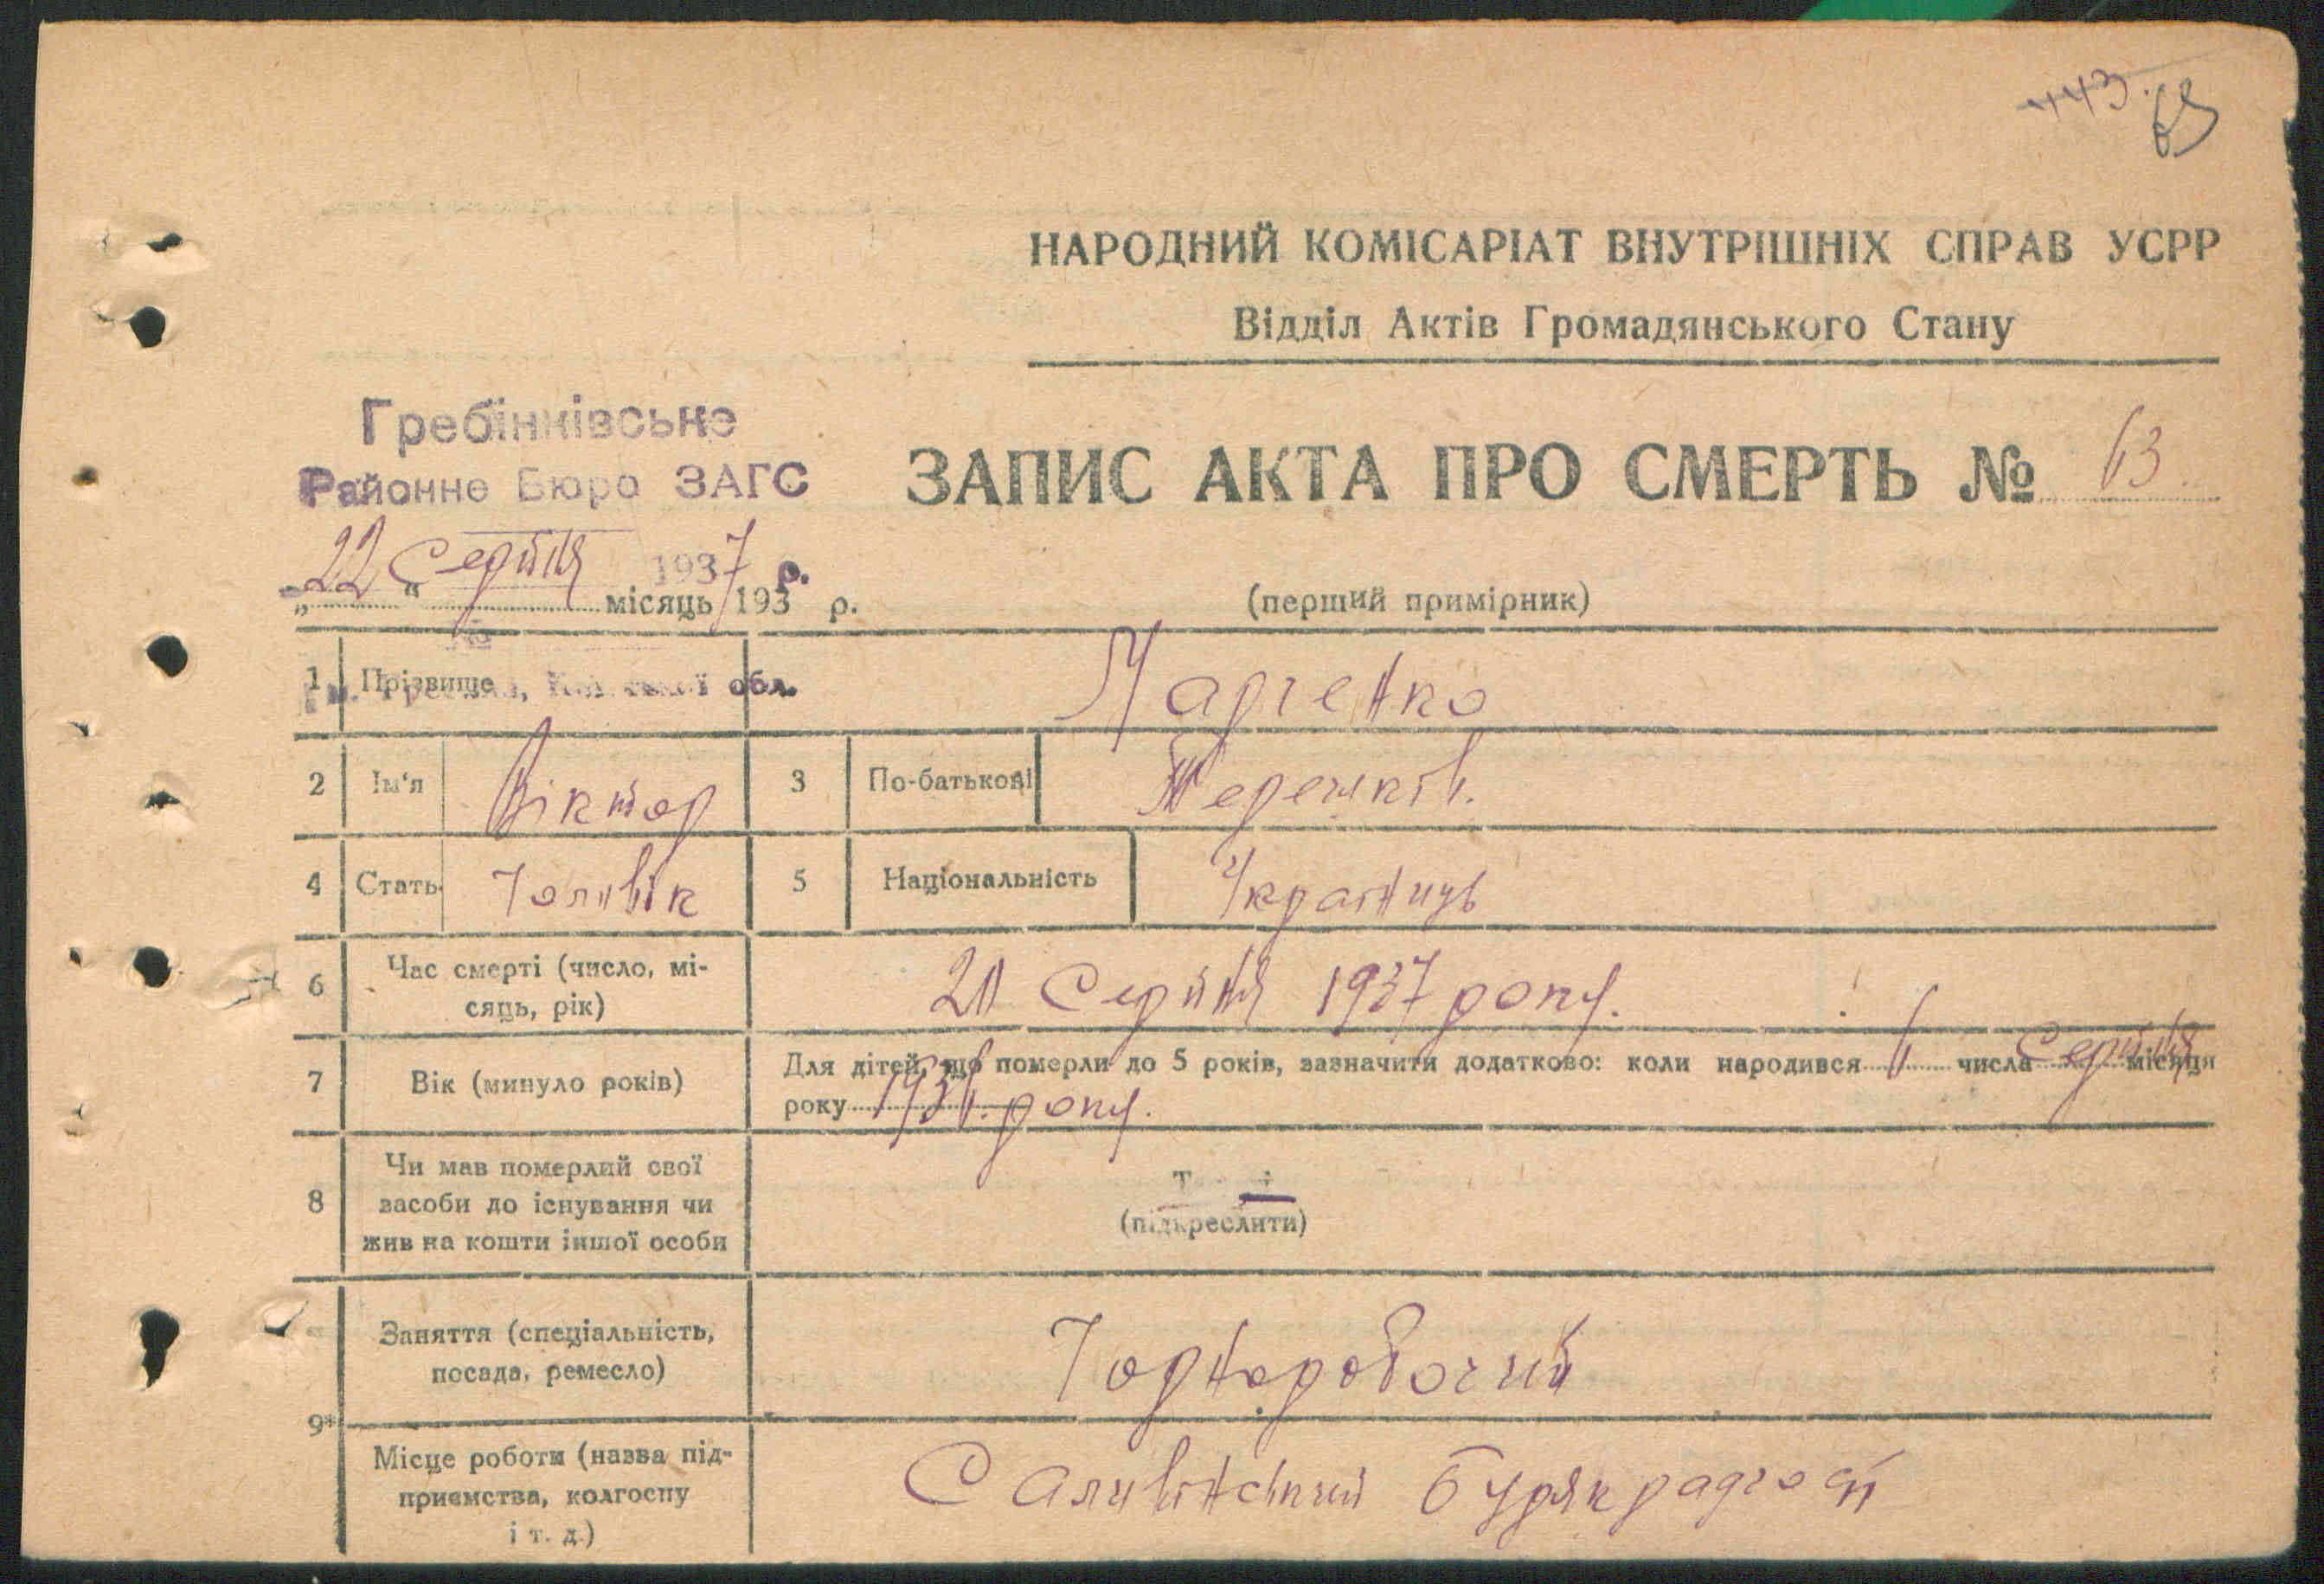 443. 63
НАРОДНИЙ КОМІСАРІАТ ВНУТРІШНІХ СПРАВ УСРР
Відділ Актів Громадянського Стану
Гребінківське
Районне Бюро ЗАГС
ЗАПИС АКТА ПРО СМЕРТЬ № 63
22 Серпня 1937 р.
„ “ місяць 193 р.
(перший примірник)
1 Прізвище
обл.
2 Ім‘я Віктор 3 По-батькові
4 Стать Чоловік 5 Національність Українець
6 Час смерті (число, мі-
сяць, рік)
21 Серпня 1937 року.
7 Вік (минуло років)
Для дітей, що померли до 5 років, зазначити додатково: коли народився 1 числа Серпня місяця
року року.
8 Чи мав померлий свої
засоби до існування чи
жив на кошти іншої особи
(підкреслити)
Заняття (спеціальність,
посада, ремесло)
Чорноробочий
9*
Місце роботи (назва під-
приємства, колгоспу
і т. д.)
Саливінський Бурякрадгосп